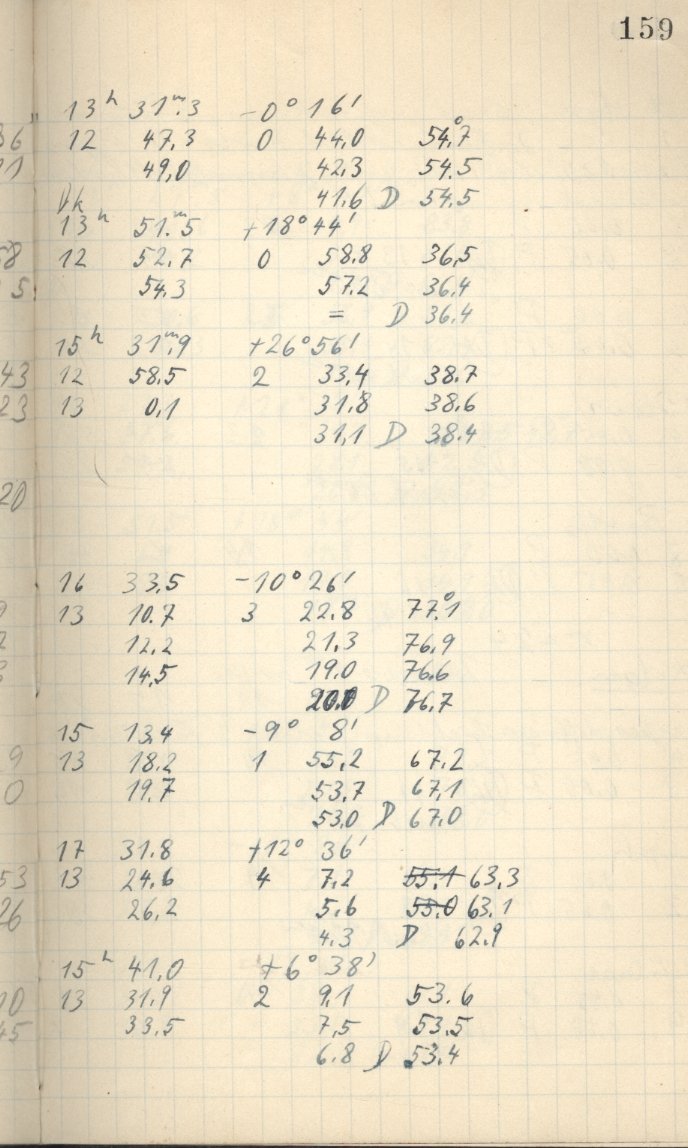 159
13ʰ 31ᵐ.3 -0° 16'
12 47,3 0 44,0 54°,7
49,0 42,3 54.5
41,6 D 54,5
13ʰ 51.ᵐ5 +18° 44'
12 52.7 0 58.8 36,5
54.3 57.2 36.4
= D 36.4
15ʰ 31ᵐ.9 +26° 56'
12 58.5 2 33,4 38.7
13 0,1 31,8 38,6
31,1 D 38.4
16 33,5 -10° 26'
13 10.7 3 22.8 77.°1
12.2 21,3 76,9
14,5 19.0 76.6
20.0 D 76,7
15 13,4 -9° 8'
13 18.2 1 55,2 67.2
19.7 53.7 67,1
53,0 D 67.0
17 31.8 +12° 36'
13 24,6 4 7,2 55.1 63,3
26,2 5,6 55.0 63.1
4.3 D 62.9
15ʰ 41,0 +6° 38'
13 31,9 2 9,1 53.6
33,5 7,5 53.5
6.8 D 53.4